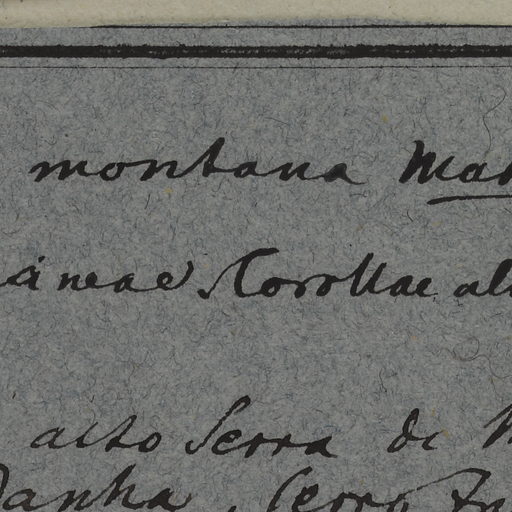 montana Mar
ineae. Corollae al
alto Serra di M
danha, Cerro Fr